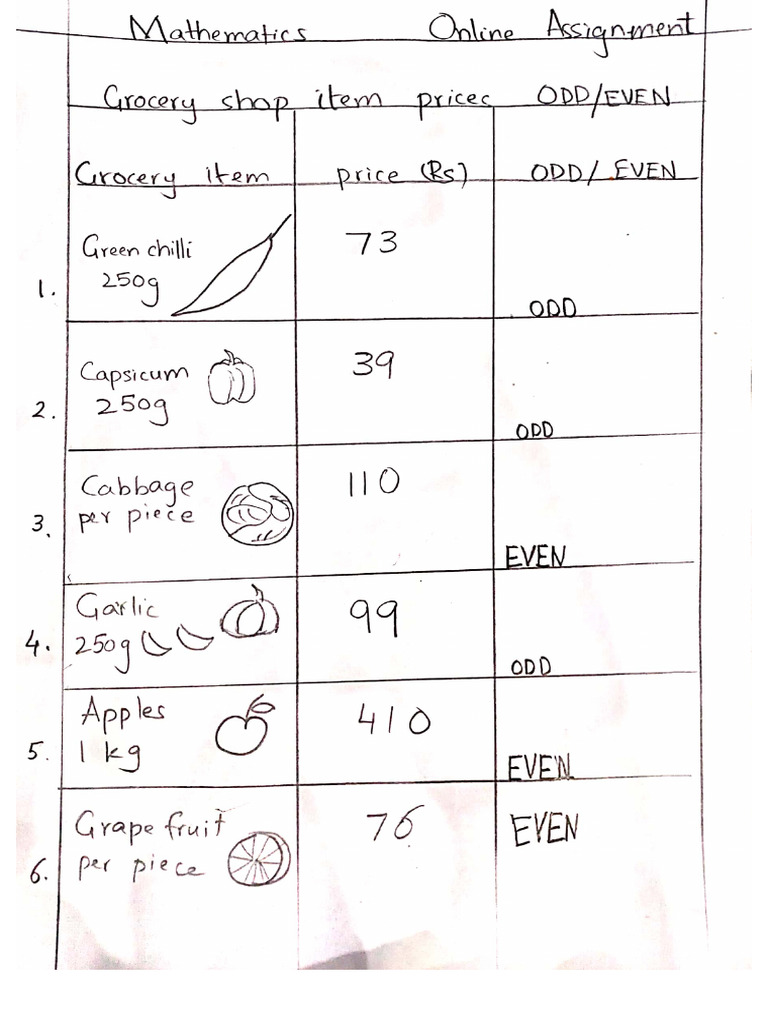 Mathematics Online Assignment
Grocery shop item prices ODD/EVEN
Grocery item price (Rs) ODD/ EVEN
1. Green chilli 250g 73 ODD
2. Capsicum 250g 39 ODD
3. Cabbage per piece 110 EVEN
4. Garlic 250g 99 ODD
5. Apples 1 kg 410 EVEN
6. Grape fruit per piece 76 EVEN